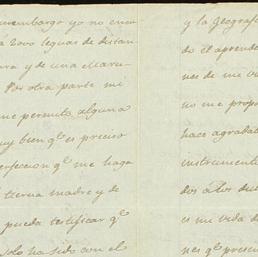 sinembargo yo no encu
á 2000 leguas de distan
ra y de una Maru-
Por otra parte mi
me permita alguna
uy bien qe es preciso
erfeccion qe me haga
tierna madre y de
pueda testificar qe
solo ha sido con el
y la Geografi
do el aprende
nes de mi vi
no me prop
hace agrabad
instrumento
dos a Los diez
es mi vida d
nes qe presen